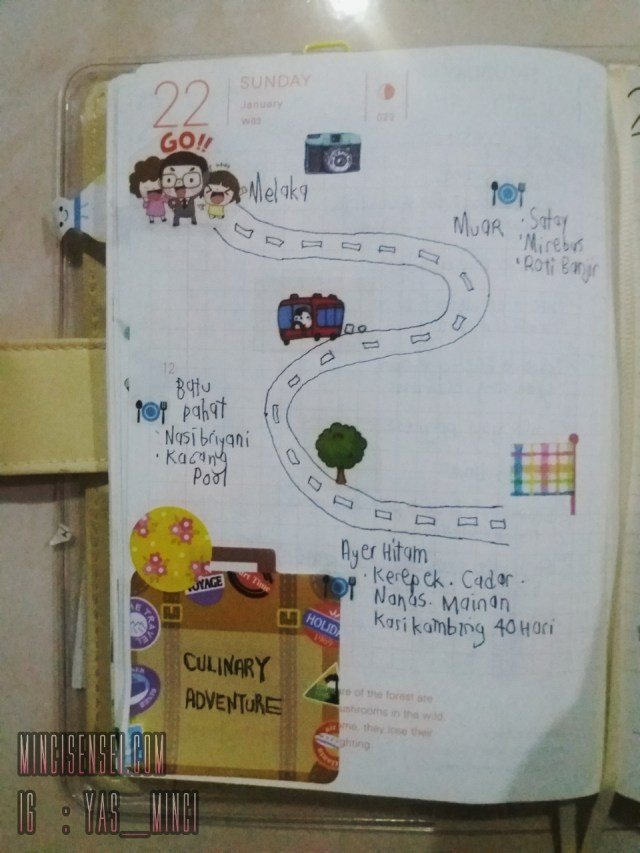 22
SUNDAY
January
W03
022
GO!!
Melaka
Muar
• Satay
• Mirebus
• Roti Banjir
12
Batu
pahat
• Nasi briyani
• Kacang
Pool
Ayer Hitam
• Kerepek. Cadar.
Nanas. Mainan
Kari kambing 40 Hari
VOYAGE
HOLID
CULINARY
ADVENTURE
re of the forest are
ushrooms in the wild.
me, they lose their
ghting.
MINCISENSEI.COM
IG : YAS__MINCI